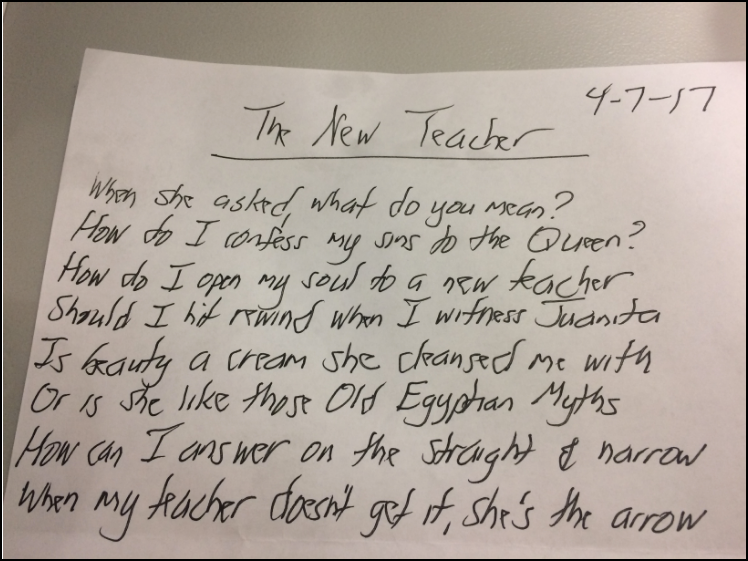 4-7-17
The New Teacher
When she asked, what do you mean?
How do I confess my sins to the Queen?
How do I open my soul to a new teacher
Should I hit rewind when I witness Juanita
Is beauty a cream she cleansed me with
Or is she like those Old Egyptian Myths
How can I answer on the straight & narrow
When my teacher doesn't get it, she's the arrow